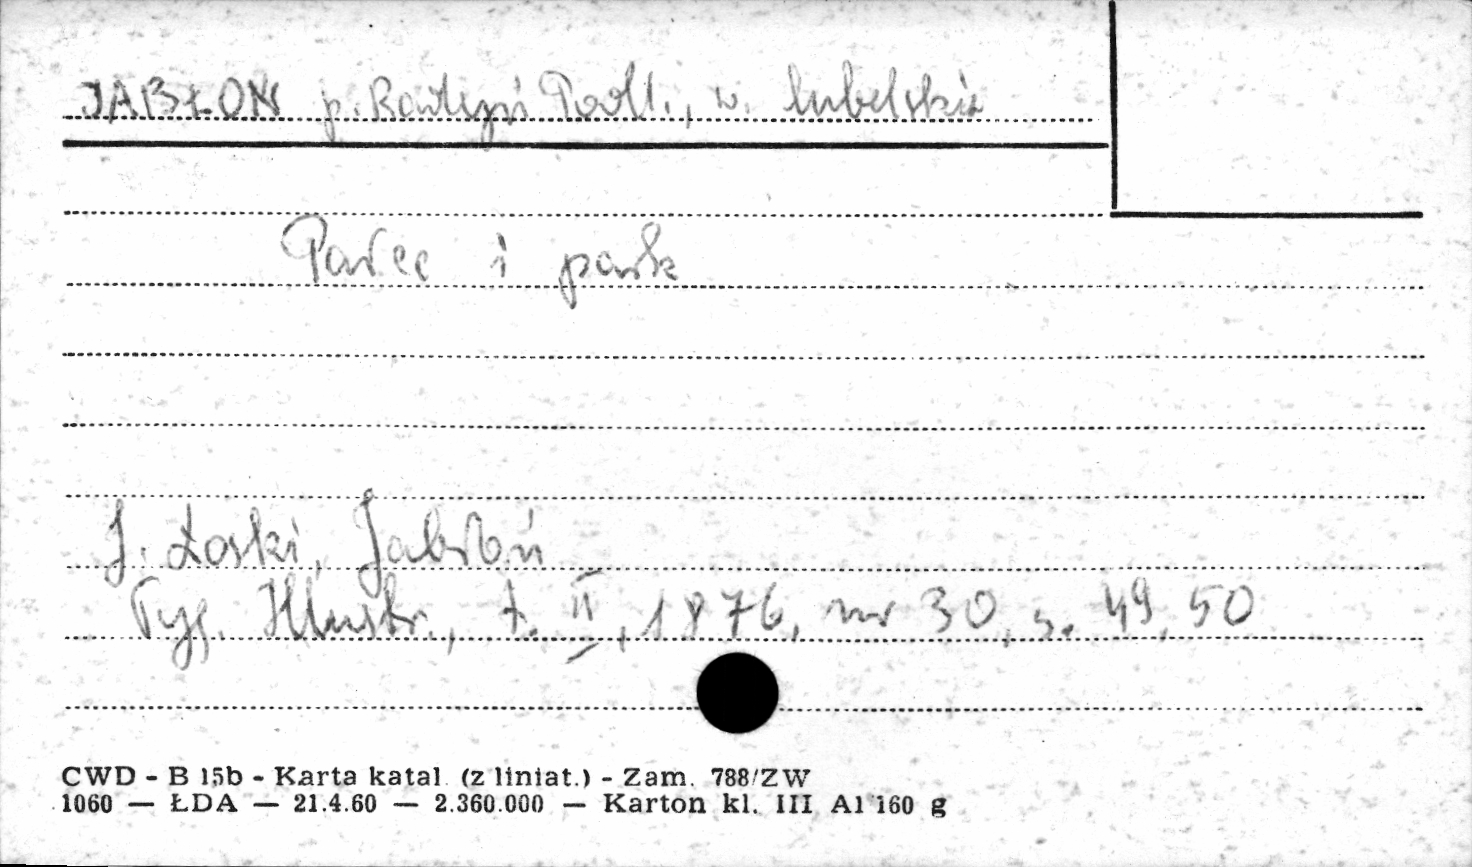 JABŁOŃ p. Radzyń Podl., w. lubelskie
Pałac i park
J. Łoski, Jabłoń
Tyg. Illustr., t. II, 1876, nr 30, s. 49, 50
CWD - B 15b - Karta katal. (z liniat.) - Zam. 788/ZW
1060 — ŁDA — 21.4.60 — 2.360.000 — Karton kl. III A1 160 g